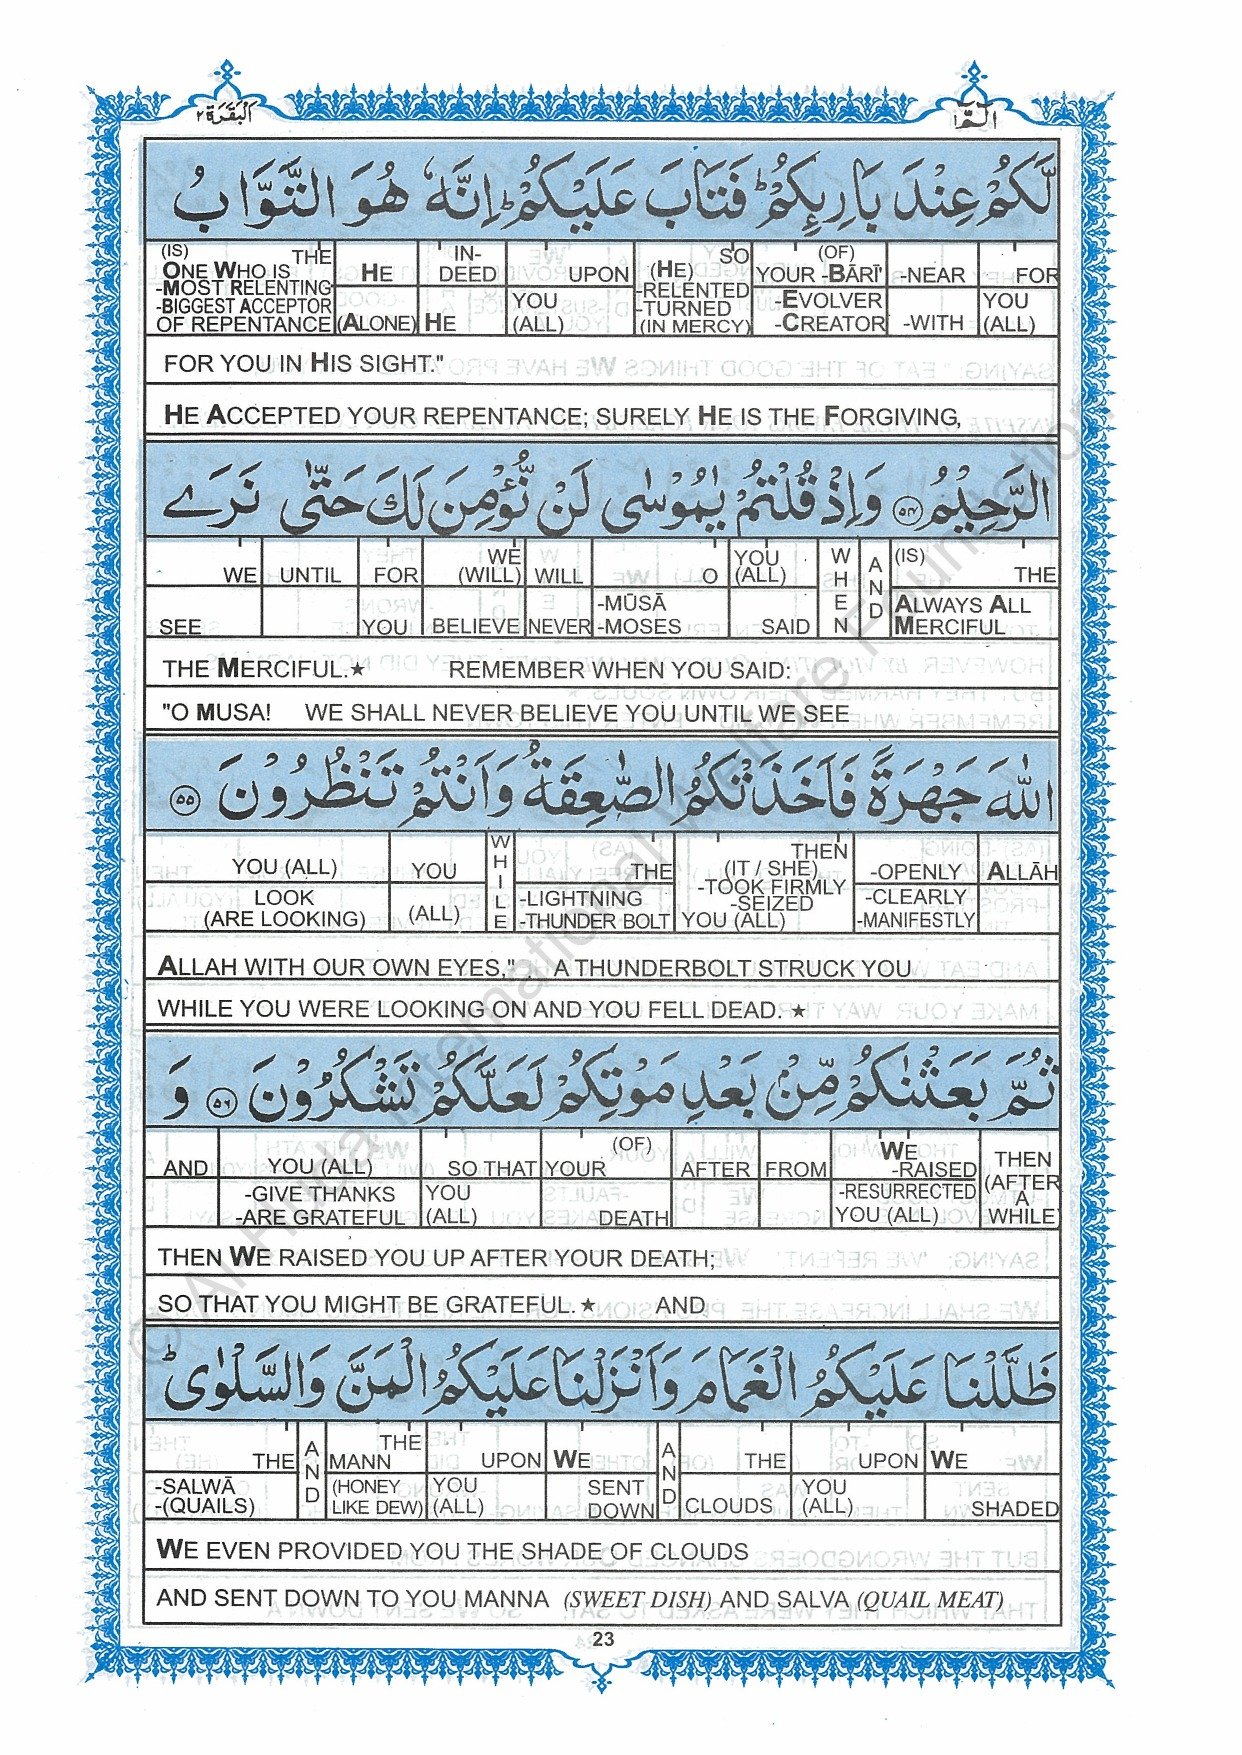 الٓمّٓ ١
اَلْبَقَرَة ٢
لَّكُمْ عِنْدَ بَارِئِكُمْ ؕ فَتَابَ عَلَيْكُمْ ؕ اِنَّهٗ هُوَ التَّوَّابُ
(IS) THE IN- SO (OF)
ONE WHO IS HE DEED UPON (HE) YOUR -BĀRĪ' -NEAR FOR
-MOST RELENTING -RELENTED
-BIGGEST ACCEPTOR YOU -TURNED -EVOLVER YOU
OF REPENTANCE (ALONE) HE (ALL) (IN MERCY) -CREATOR -WITH (ALL)
FOR YOU IN HIS SIGHT."
HE ACCEPTED YOUR REPENTANCE; SURELY HE IS THE FORGIVING,
الرَّحِيْمُ ۵۴ وَاِذْ قُلْتُمْ يٰمُوْسٰى لَنْ نُّؤْمِنَ لَكَ حَتّٰى نَرَى
WE YOU W A (IS)
WE UNTIL FOR (WILL) WILL O (ALL) H N THE
-MŪSĀ E D ALWAYS ALL
SEE YOU BELIEVE NEVER -MOSES SAID N MERCIFUL
THE MERCIFUL.★ REMEMBER WHEN YOU SAID:
"O MUSA! WE SHALL NEVER BELIEVE YOU UNTIL WE SEE
اللّٰهَ جَهْرَةً فَاَخَذَتْكُمُ الصّٰعِقَةُ وَاَنْتُمْ تَنْظُرُوْنَ ۵۵
YOU (ALL) YOU WHILE THE THEN -OPENLY ALLĀH
(IT / SHE)
LOOK -LIGHTNING -TOOK FIRMLY -CLEARLY
(ARE LOOKING) (ALL) -THUNDER BOLT -SEIZED -MANIFESTLY
YOU (ALL)
ALLAH WITH OUR OWN EYES," A THUNDERBOLT STRUCK YOU
WHILE YOU WERE LOOKING ON AND YOU FELL DEAD. ★
ثُمَّ بَعَثْنٰكُمْ مِّنْۢ بَعْدِ مَوْتِكُمْ لَعَلَّكُمْ تَشْكُرُوْنَ ۵۶ وَ
(OF) WE THEN
AND YOU (ALL) SO THAT YOUR AFTER FROM -RAISED (AFTER
-GIVE THANKS YOU -RESURRECTED A
-ARE GRATEFUL (ALL) DEATH YOU (ALL) WHILE)
THEN WE RAISED YOU UP AFTER YOUR DEATH;
SO THAT YOU MIGHT BE GRATEFUL. ★ AND
ظَلَّلْنَا عَلَيْكُمُ الْغَمَامَ وَاَنْزَلْنَا عَلَيْكُمُ الْمَنَّ وَالسَّلْوٰى ؕ
THE AND THE UPON WE AND THE UPON WE
MANN
-SALWĀ (HONEY YOU SENT YOU
-(QUAILS) LIKE DEW) (ALL) DOWN CLOUDS (ALL) SHADED
WE EVEN PROVIDED YOU THE SHADE OF CLOUDS
AND SENT DOWN TO YOU MANNA (SWEET DISH) AND SALVA (QUAIL MEAT)
23
© Al-Huda International Welfare Foundation